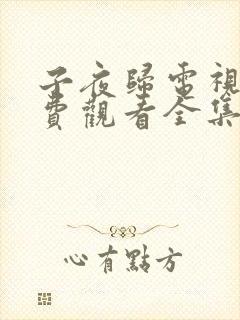 子夜歸電視
費觀看全集
心有點方